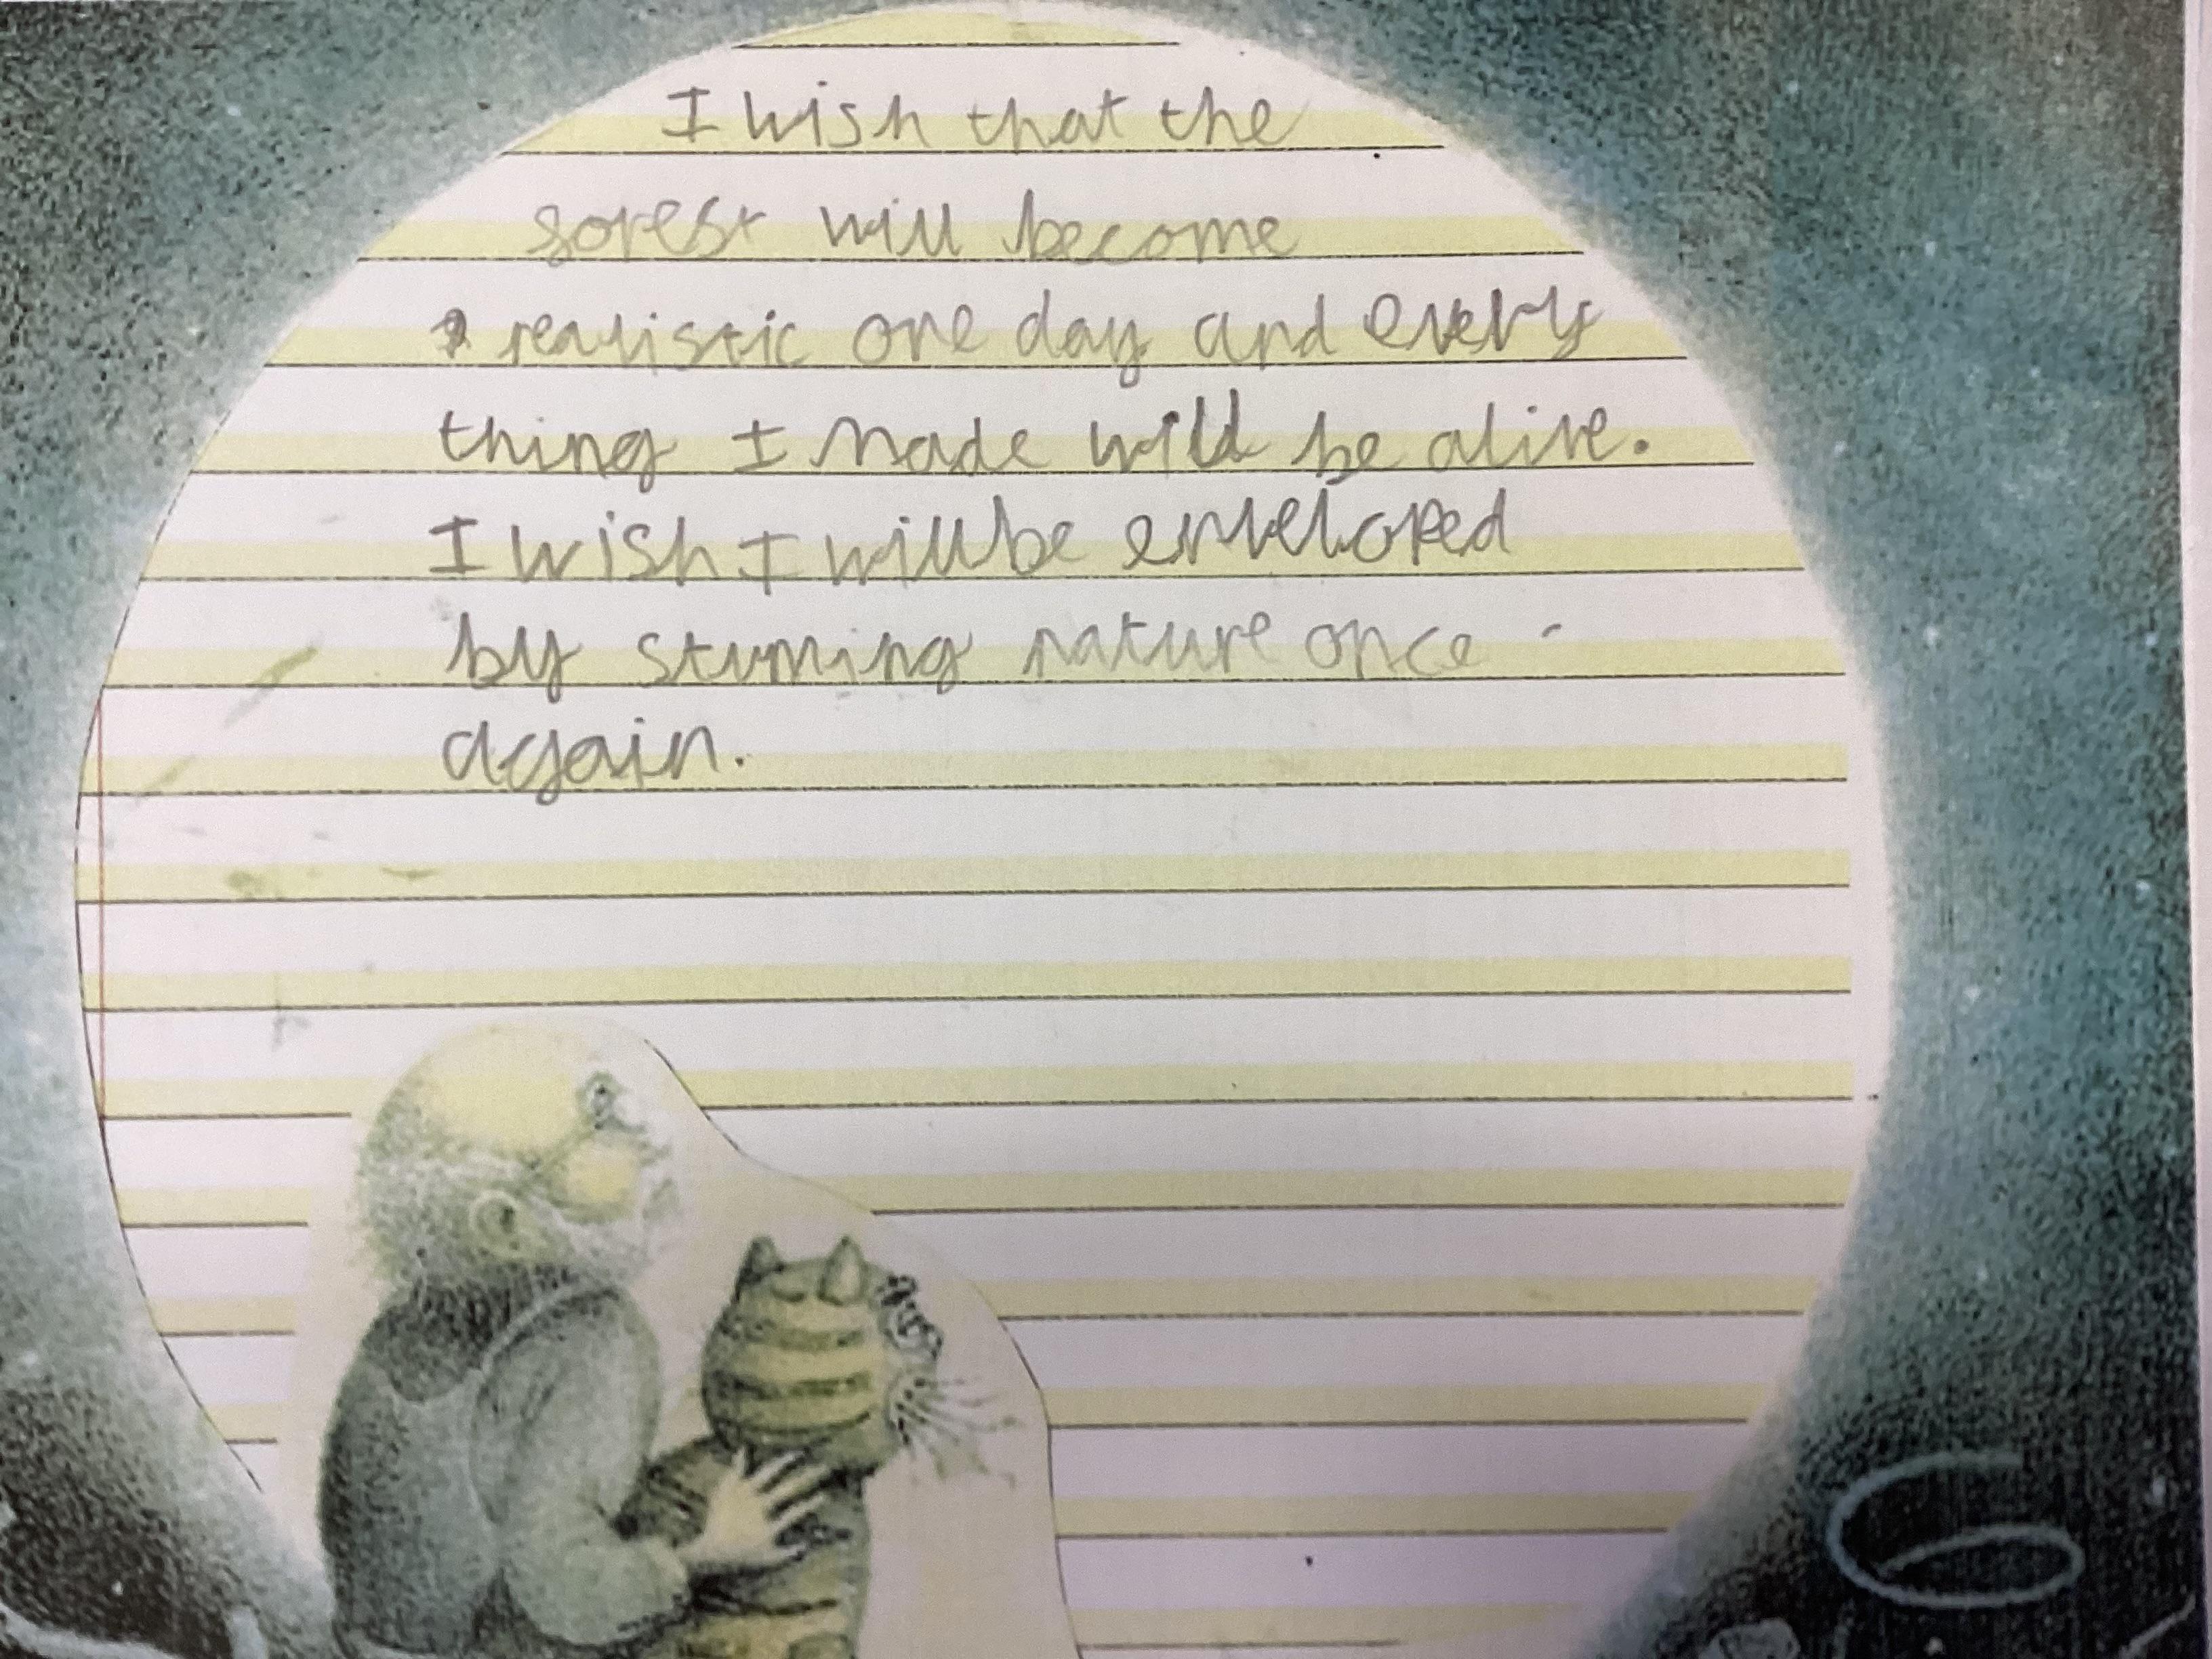 I wish that the
forest will become
realistic one day and every
thing I made will be alive.
I wish I will be enveloped
by stunning nature once
again.